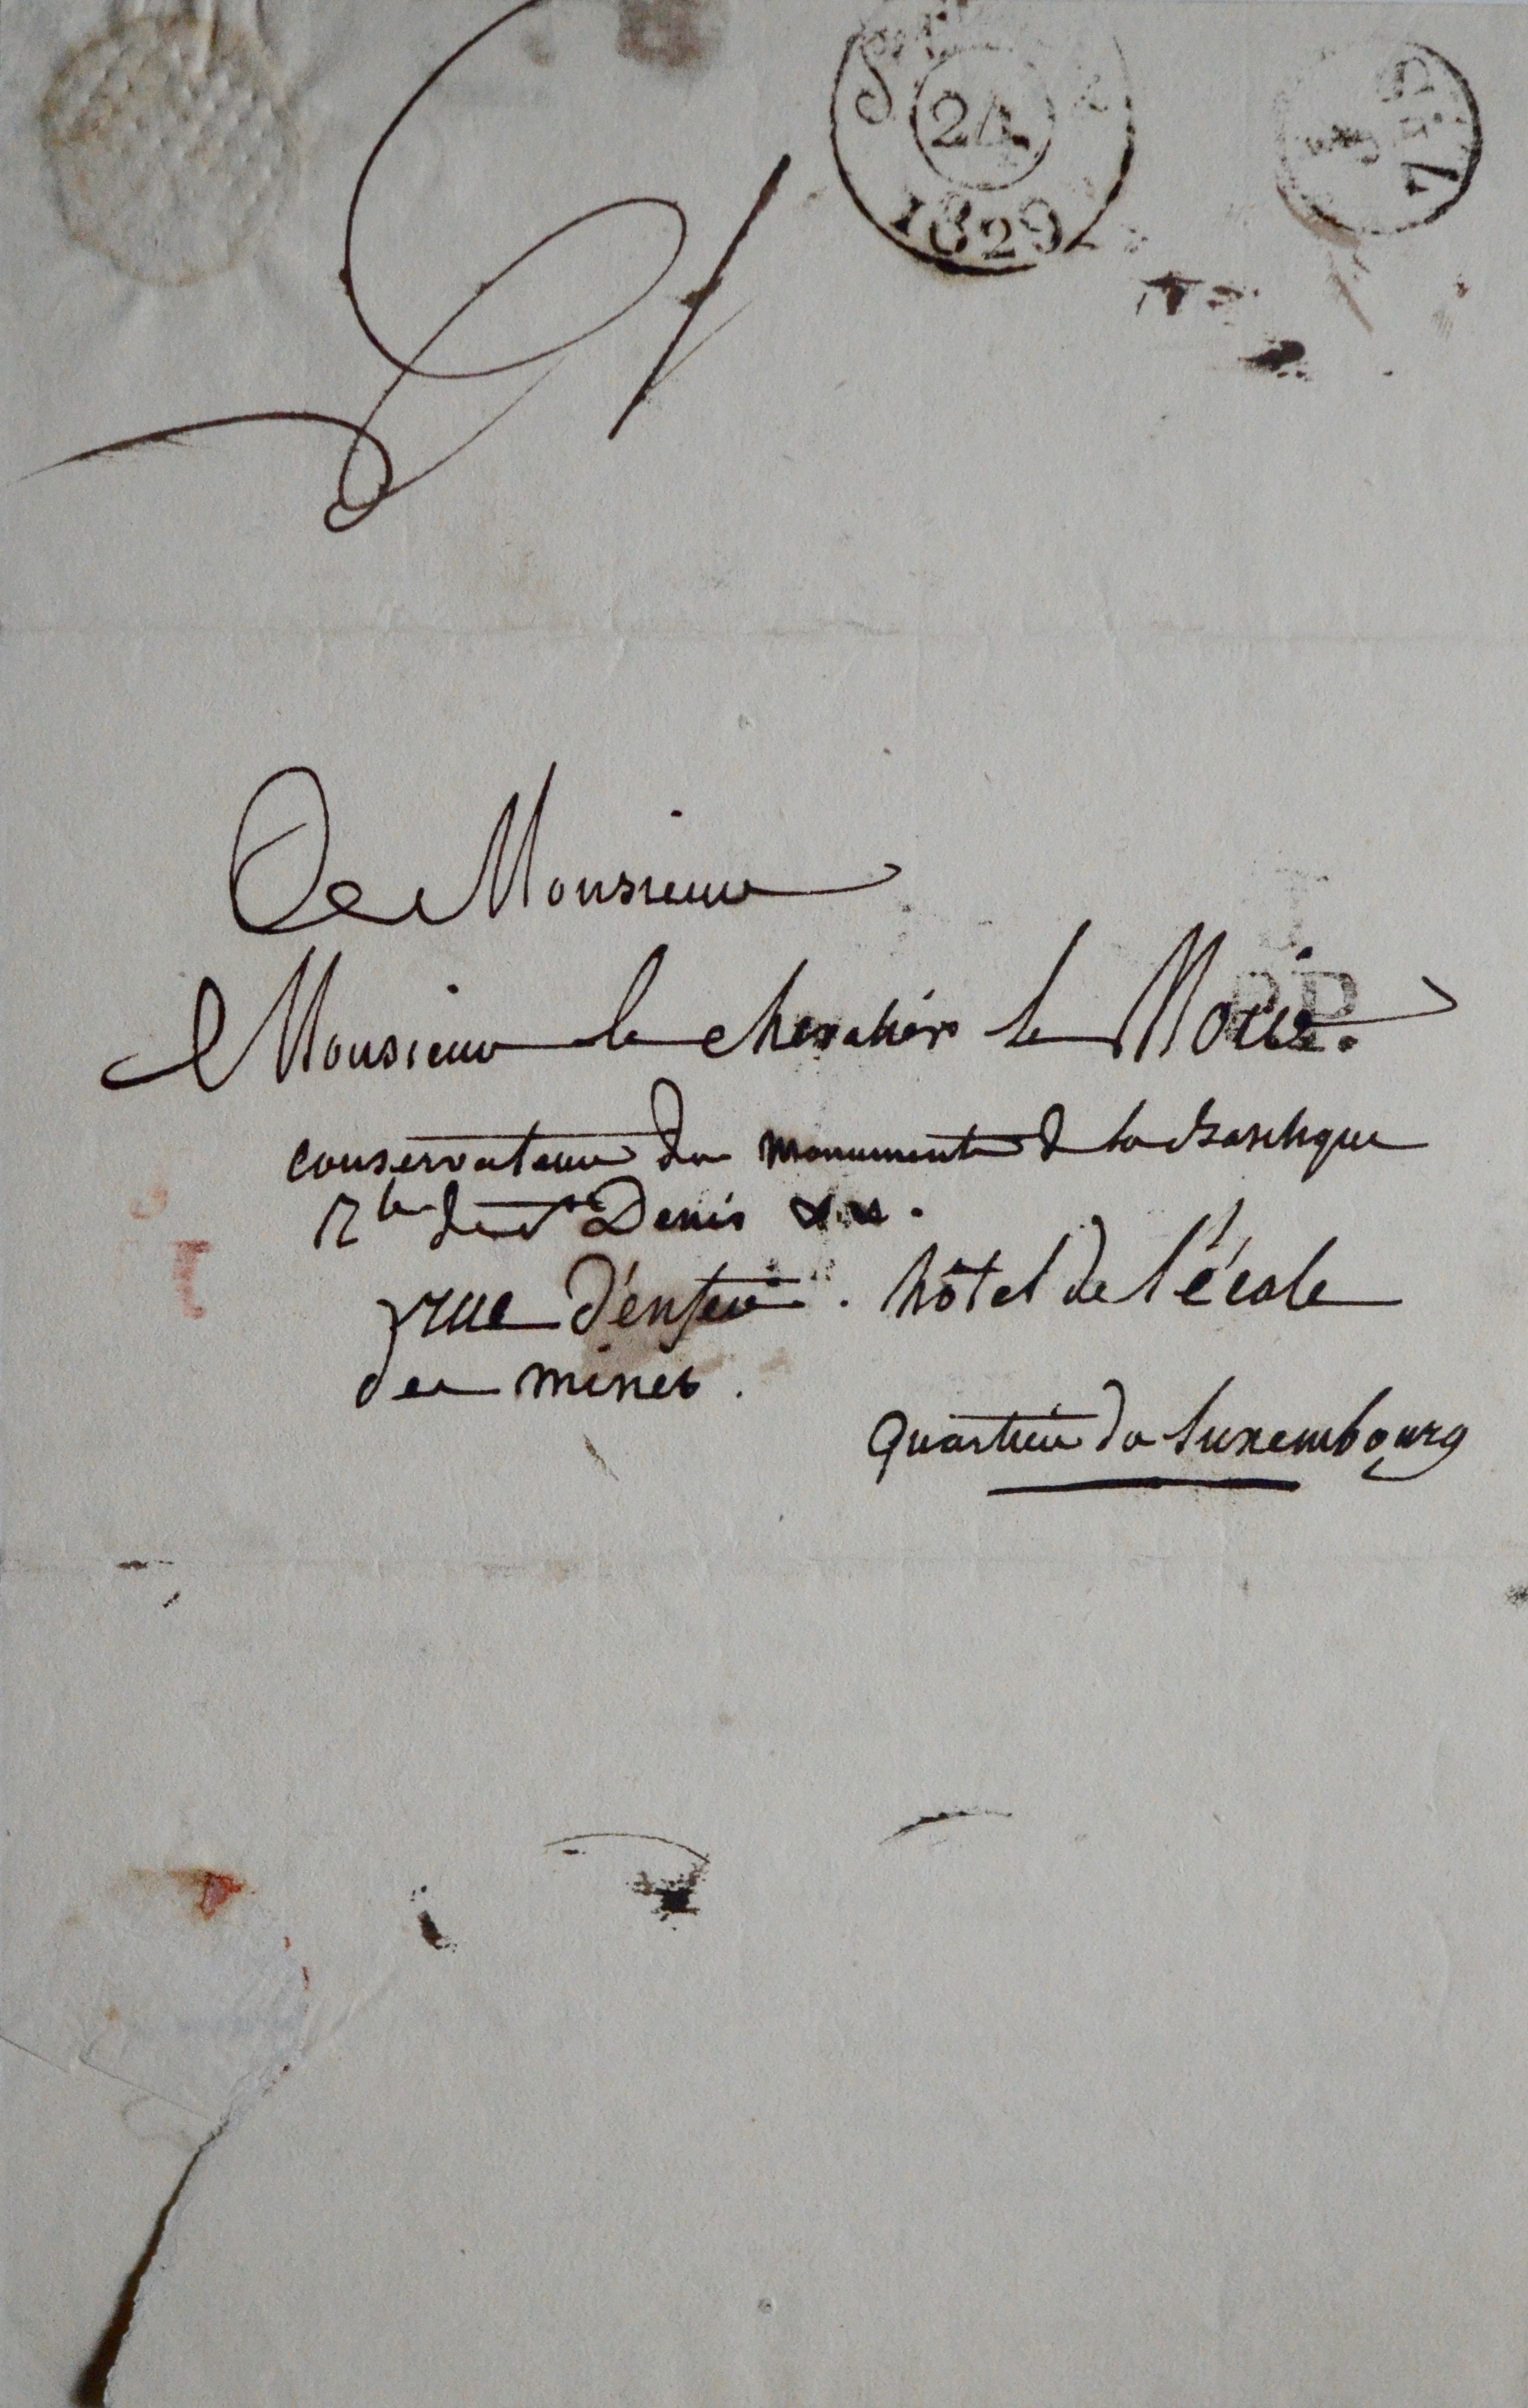 24
1829
De Monsieur
Monsieur le chevalier le Noir
P.P.
conservateur des monuments de la Basilique
Rle de St Denis &&.
rue d'enfer. hôtel de l'école
des mines.
quartier du luxembourg